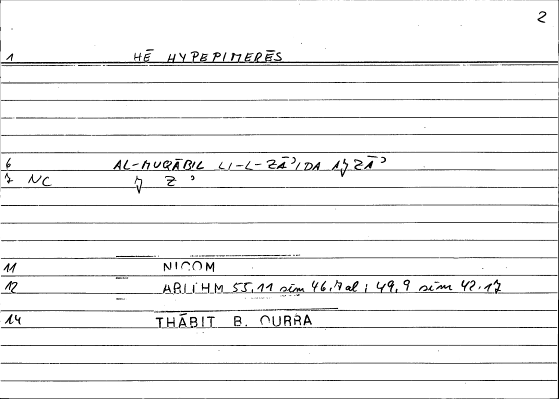 2
1 HĒ HYPEPIMERĒS
6 AL-MUQĀBIL LI-L-ZĀʾIDA AǦZĀʾ
7 NC ǧ Z ʾ
11 NICOM
12 ARITHM 55,11 sim 46.7 al ; 49,9 sim 42.17
14 THĀBIT B. QURRA